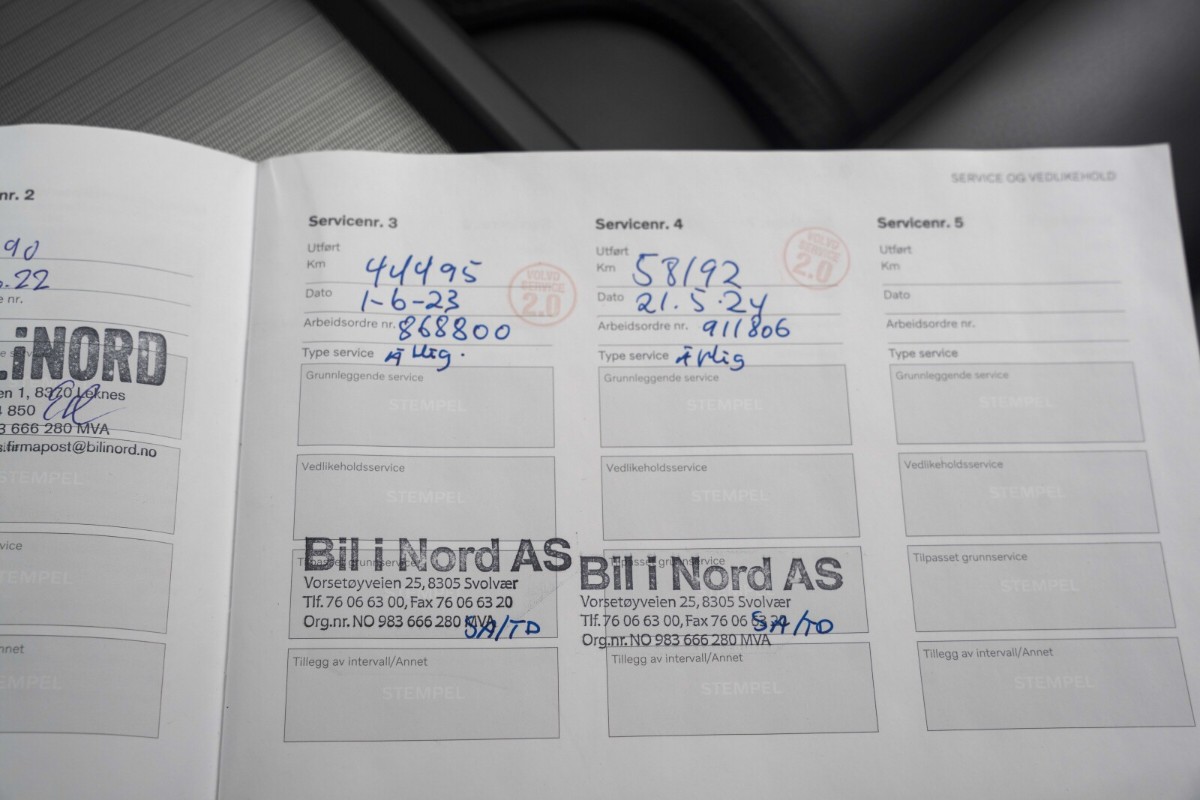 SERVICE OG VEDLIKEHOLD
nr. 2
90
.22
e nr.
iNORD
en 1, 8370 Leknes
850
3 666 280 MVA
firmapost@bilinord.no
STEMPEL
vice
STEMPEL
nnet
EMPEL
Servicenr. 3
Utført
Km 44495
VOLVO SERVICE 2.0
Dato 1-6-23
Arbeidsordre nr. 868800
Type service Årlig.
Grunnleggende service
STEMPEL
Vedlikeholdsservice
STEMPEL
Tilpasset grunnservice
Bil i Nord AS
Vorsetøyveien 25, 8305 Svolvær
Tlf. 76 06 63 00, Fax 76 06 63 20
Org.nr. NO 983 666 280 MVA
SA/TD
Tillegg av intervall/Annet
STEMPEL
Servicenr. 4
Utført
Km 58192
VOLVO SERVICE 2.0
Dato 21.5.24
Arbeidsordre nr. 911806
Type service Årlig
Grunnleggende service
STEMPEL
Vedlikeholdsservice
STEMPEL
Tilpasset grunnservice
Bil i Nord AS
Vorsetøyveien 25, 8305 Svolvær
Tlf. 76 06 63 00, Fax 76 06 63 20
Org.nr. NO 983 666 280 MVA
SA/TD
Tillegg av intervall/Annet
STEMPEL
Servicenr. 5
Utført
Km
Dato
Arbeidsordre nr.
Type service
Grunnleggende service
STEMPEL
Vedlikeholdsservice
STEMPEL
Tilpasset grunnservice
STEMPEL
Tillegg av intervall/Annet
STEMPEL